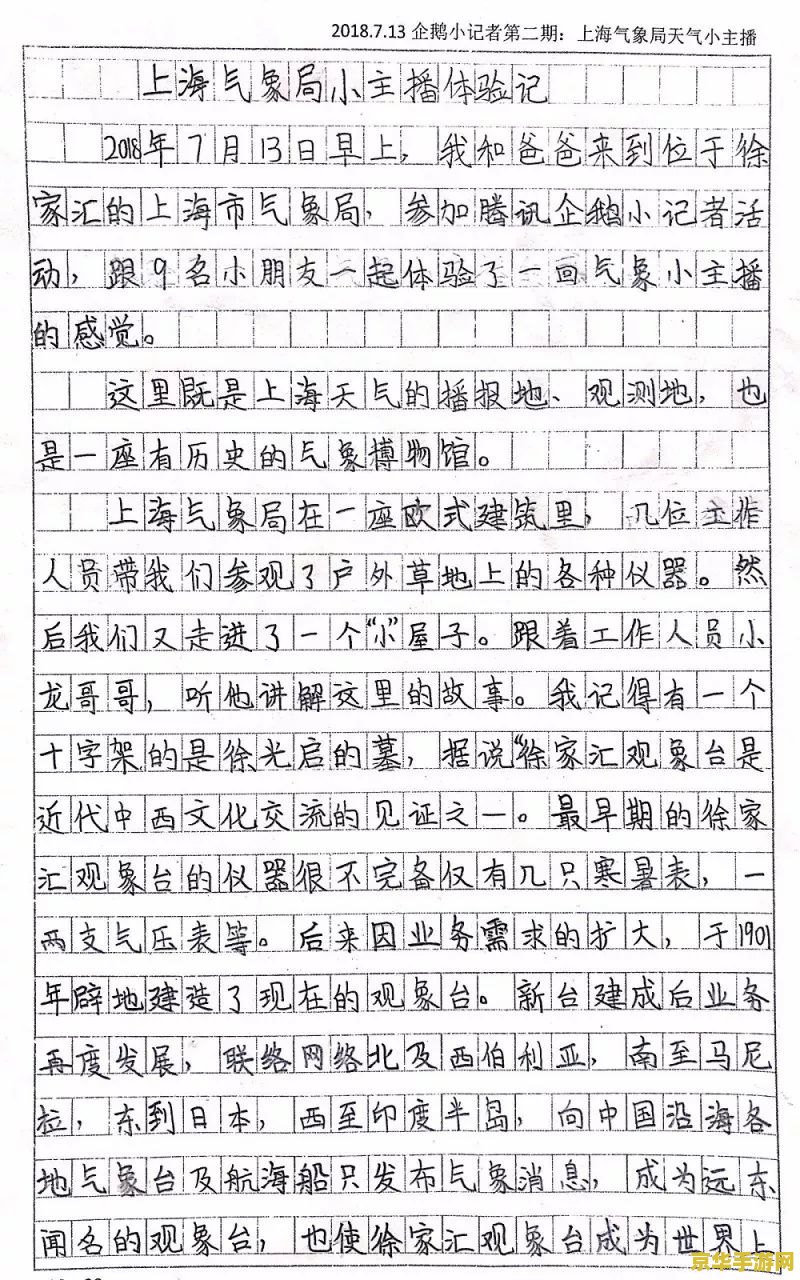 2018.7.13 企鹅小记者第二期：上海气象局天气小主播
上海气象局小主播体验记
2018年7月13日早上，我和爸爸来到位于徐
家汇的上海市气象局，参加腾讯企鹅小记者活
动，跟9名小朋友一起体验了一回气象小主播
的感觉。
这里既是上海天气的播报地、观测地，也
是一座有历史的气象博物馆。
上海气象局在一座欧式建筑里，几位工作
人员带我们参观了户外草地上的各种仪器。然
后我们又走进了一个“小”屋子。跟着工作人员小
龙哥哥，听他讲解这里的故事。我记得有一个
十字架的是徐光启的墓，据说“徐家汇观象台是
近代中西文化交流的见证之一。最早期的徐家
汇观象台的仪器很不完备仅有几只寒暑表，一
两支气压表等。后来因业务需求的扩大，于1901
年辟地建造了现在的观象台。新台建成后业务
再度发展，联络网络北及西伯利亚，南至马尼
拉，东到日本，西至印度半岛，向中国沿海各
地气象台及航海船只发布气象消息，成为远东
闻名的观象台，也使徐家汇观象台成为世界上
京华手游网